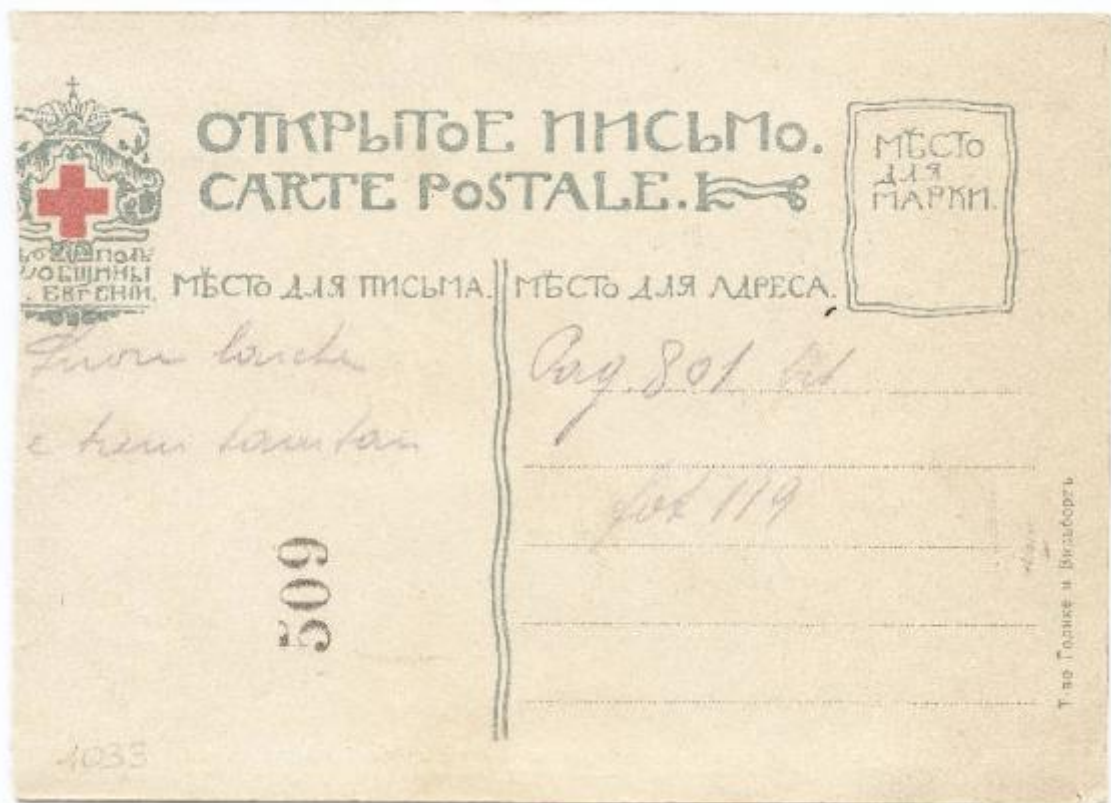 ОТКРЫТОЕ ПИСЬМО.
CARTE POSTALE.
МѢСТО
ДЛЯ
МАРКИ.
ПОЛЬ
ОБЩИНЫ
ЕВГЕНІИ.
МѢСТО ДЛЯ ПИСЬМА.
МѢСТО ДЛЯ АДРЕСА.
Pag. 801
fot 119
509
1033
Т-во Голике и Вильборгъ